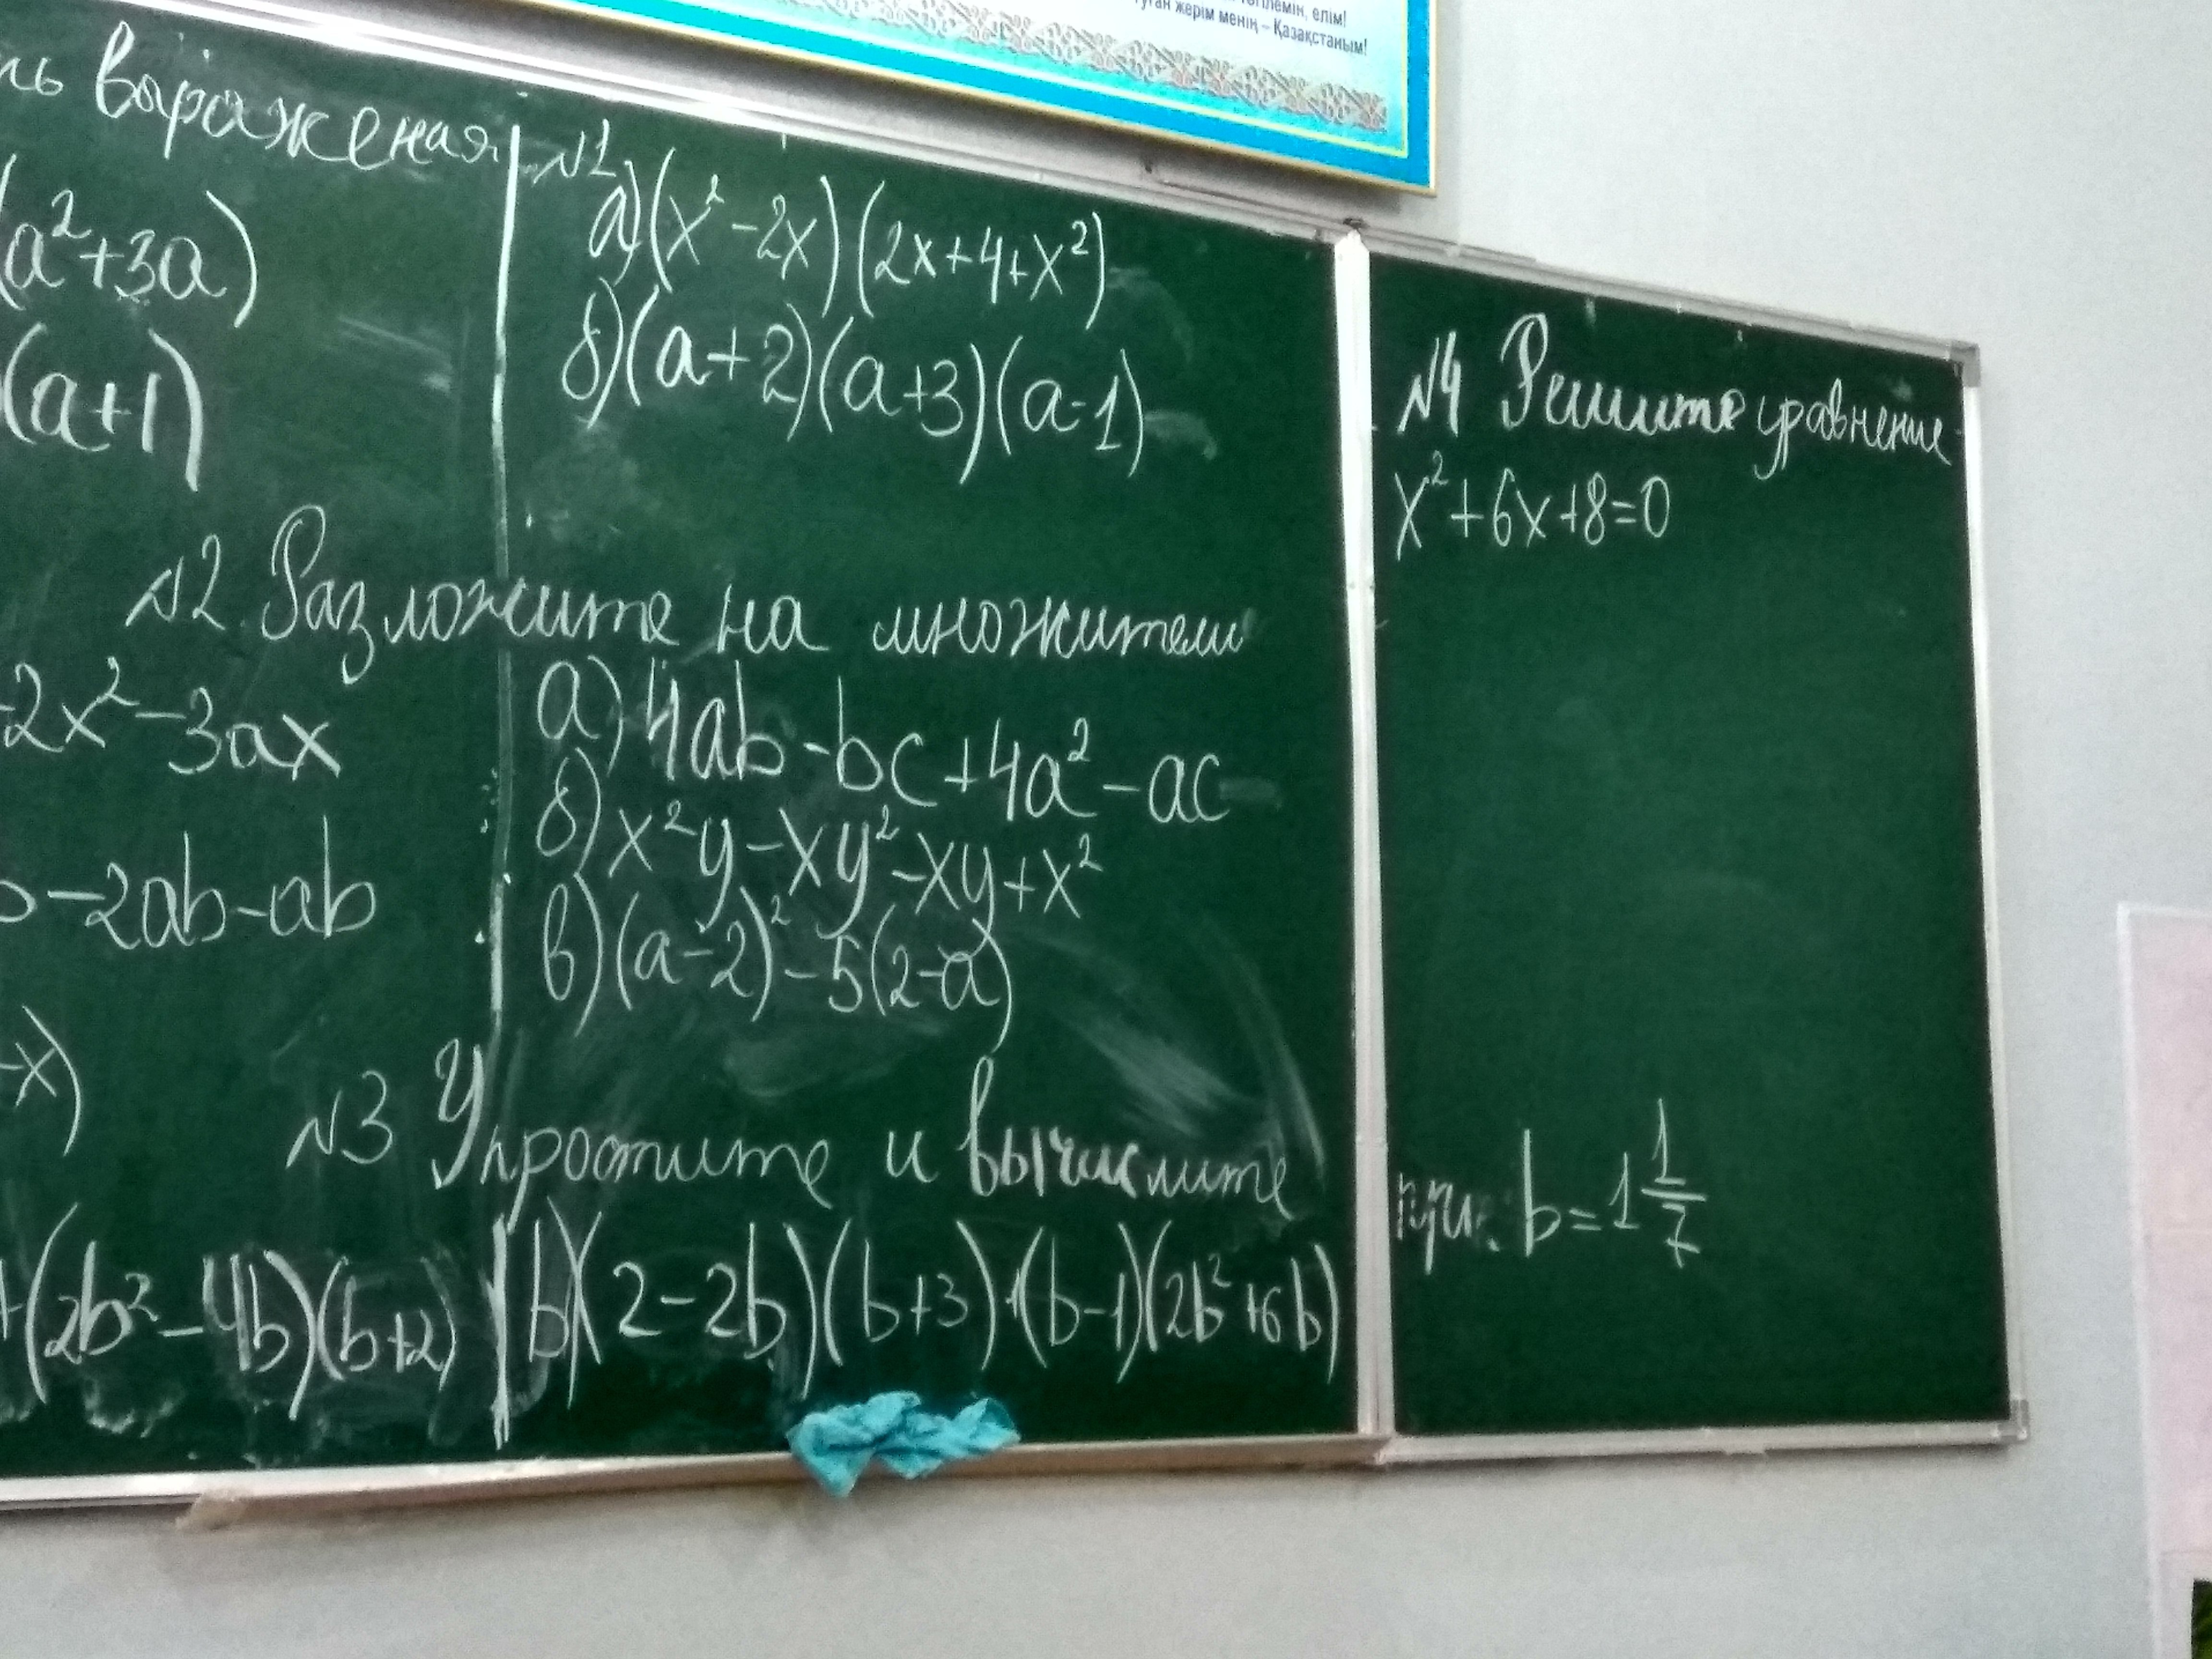 елім!
жерім менің – Қазақстаным!
выражения
(a²+3a)
(a+1)
№1
а) (x²-2x)(2x+4+x²)
б) (a+2)(a+3)(a-1)
№2 Разложите на множители
2x²-3ax
-2ab-ab
-x)
а) 4ab-bc+4a²-ac
б) x²y-xy²-xy+x²
в) (a-2)²-5(2-a)
№3 Упростите и вычислите
(2b²-4b)(b+2)
b)(2-2b)(b+3)+(b-1)(2b²+6b)
при b=1 1/7
№4 Решите уравнение
x²+6x+8=0